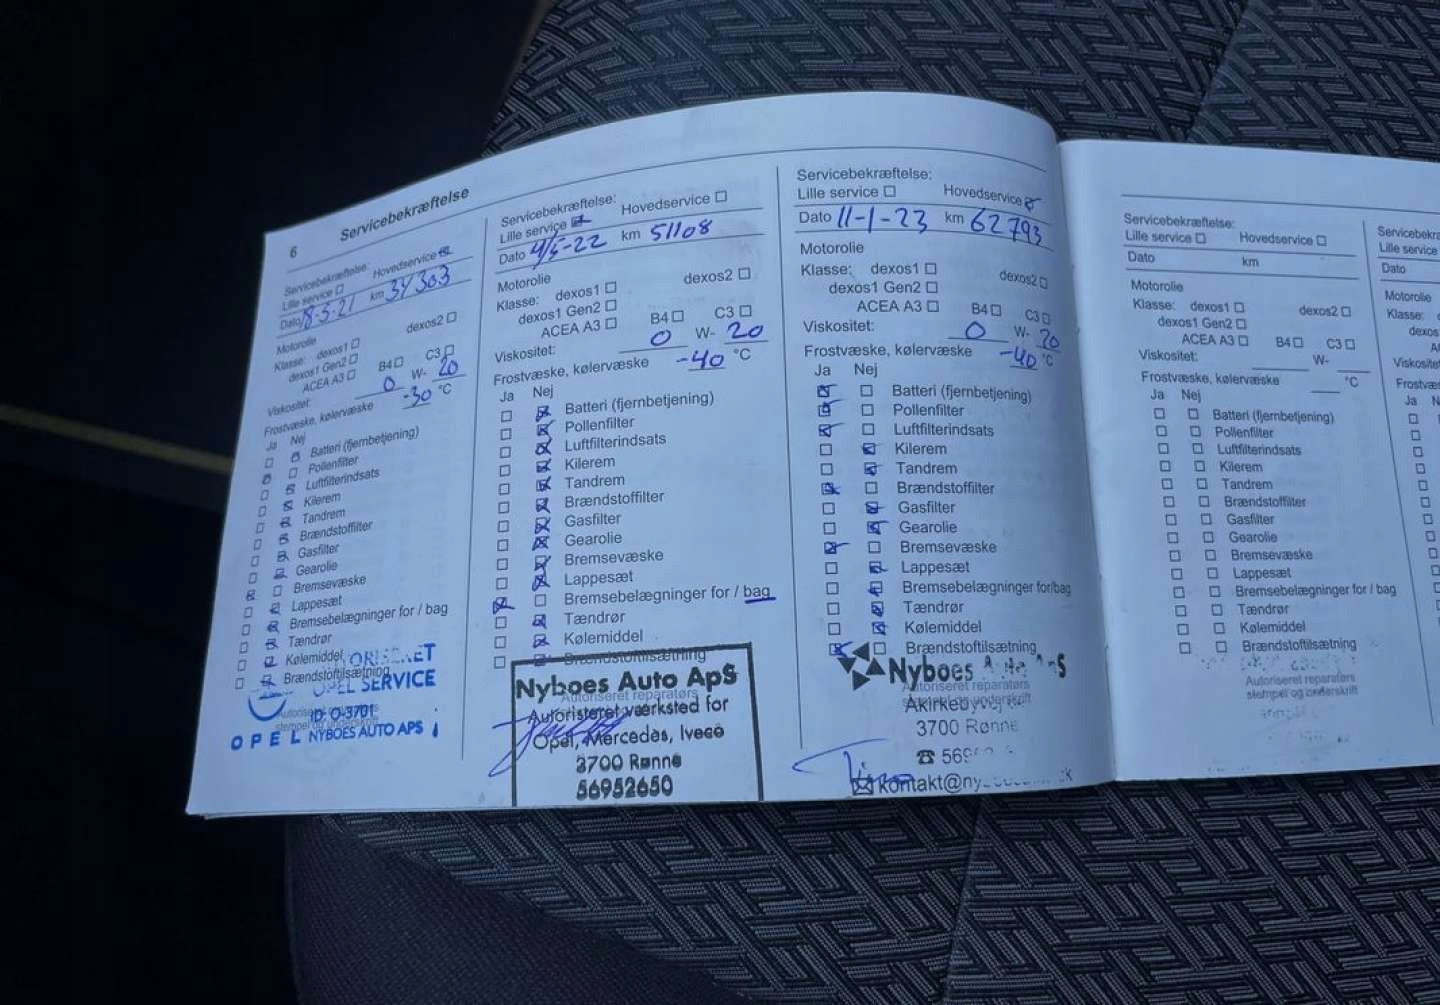 6
Servicebekræftelse
Servicebekræftelse:
Lille service Hovedservice
Dato 18-5-21 km 34303
Motorolie
Klasse: dexos1 dexos2
dexos1 Gen2
ACEA A3 B4 C3
Viskositet: 0 W- 20
Frostvæske, kølervæske -30 °C
Ja Nej
Batteri (fjernbetjening)
Pollenfilter
Luftfilterindsats
Kilerem
Tandrem
Brændstoffilter
Gasfilter
Gearolie
Bremsevæske
Lappesæt
Bremsebelægninger for / bag
Tændrør
Kølemiddel
Brændstoftilsætning
OPEL SERVICE
Autoriseret
ID: O-3701
OPEL NYBOES AUTO APS
Servicebekræftelse:
Lille service Hovedservice
Dato 4/5-22 km 51108
Motorolie
Klasse: dexos1 dexos2
dexos1 Gen2
ACEA A3 B4 C3
Viskositet: 0 W- 20
Frostvæske, kølervæske -40 °C
Ja Nej
Batteri (fjernbetjening)
Pollenfilter
Luftfilterindsats
Kilerem
Tandrem
Brændstoffilter
Gasfilter
Gearolie
Bremsevæske
Lappesæt
Bremsebelægninger for / bag
Tændrør
Kølemiddel
Brændstoftilsætning
Nyboes Auto ApS
Autoriseret reparatørs
Autoristeret værksted for
Opel, Mercedes, Iveco
3700 Rønne
56952650
Servicebekræftelse:
Lille service Hovedservice
Dato 11-1-23 km 62793
Motorolie
Klasse: dexos1 dexos2
dexos1 Gen2
ACEA A3 B4 C3
Viskositet: 0 W- 20
Frostvæske, kølervæske -40 °C
Ja Nej
Batteri (fjernbetjening)
Pollenfilter
Luftfilterindsats
Kilerem
Tandrem
Brændstoffilter
Gasfilter
Gearolie
Bremsevæske
Lappesæt
Bremsebelægninger for/bag
Tændrør
Kølemiddel
Brændstoftilsætning
Nyboes
Autoriseret reparatørs
3700 Rønne
Servicebekræftelse:
Lille service Hovedservice
Dato km
Motorolie
Klasse: dexos1 dexos2
dexos1 Gen2
ACEA A3 B4 C3
Viskositet: W-
Frostvæske, kølervæske °C
Ja Nej
Batteri (fjernbetjening)
Pollenfilter
Luftfilterindsats
Kilerem
Tandrem
Brændstoffilter
Gasfilter
Gearolie
Bremsevæske
Lappesæt
Bremsebelægninger for / bag
Tændrør
Kølemiddel
Brændstoftilsætning
Autoriseret reparatørs
stempel og underskrift
Lille service
Dato
Motorolie
Klasse:
Ja